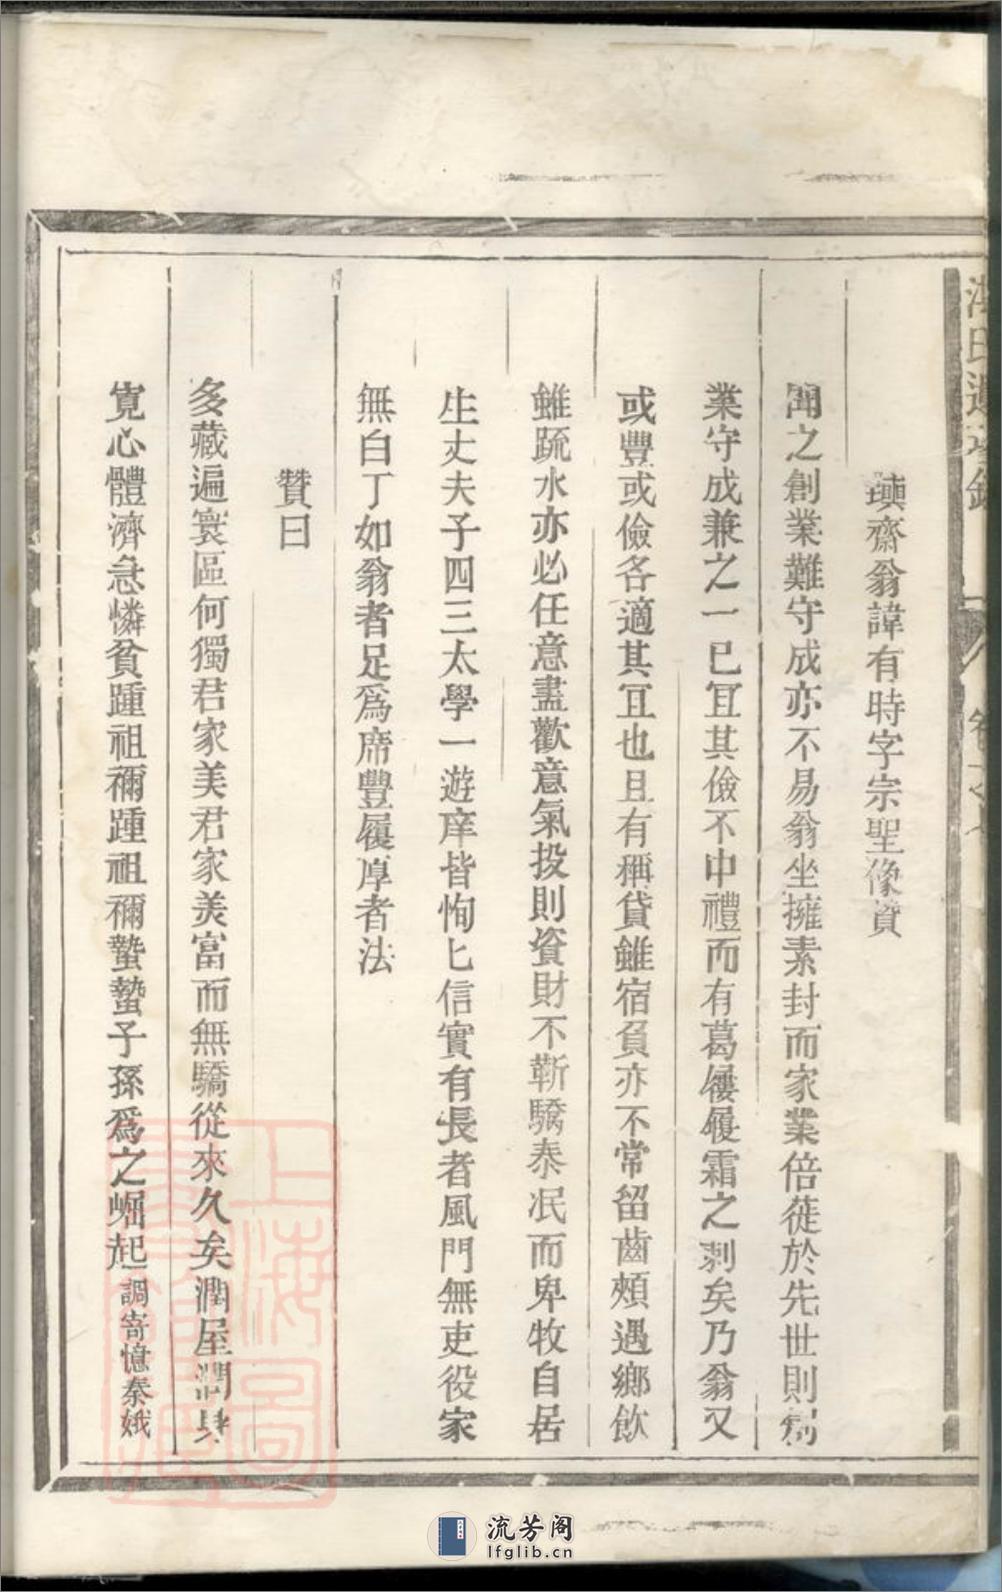 齋翁諱有時字宗聖像贊
聞之創業難守成亦不易翁坐擁素封而家業倍蓰於先世則創
業守成兼之一已冝其儉不中禮而有葛屨履霜之刺矣乃翁又
或豐或儉各適其冝也且有稱貸雖宿負亦不常留齒頰遇鄉飲
雖䟽水亦必任意盡歡意氣投則資財不靳驕泰泯而卑牧自居
生丈夫子四三太學一遊庠皆恂匕信實有長者風門無吏役家
無白丁如翁者足爲席豐履厚者法
贊曰
多藏遍寰區何獨君家美君家美富而無驕從來久矣潤屋潤身
寛心體濟急憐貧踵祖禰踵祖禰蟄蟄子孫爲之崛起調寄憶秦娥
氏
卷之七
上海圖書館藏
流芳阁
lfglib.cn